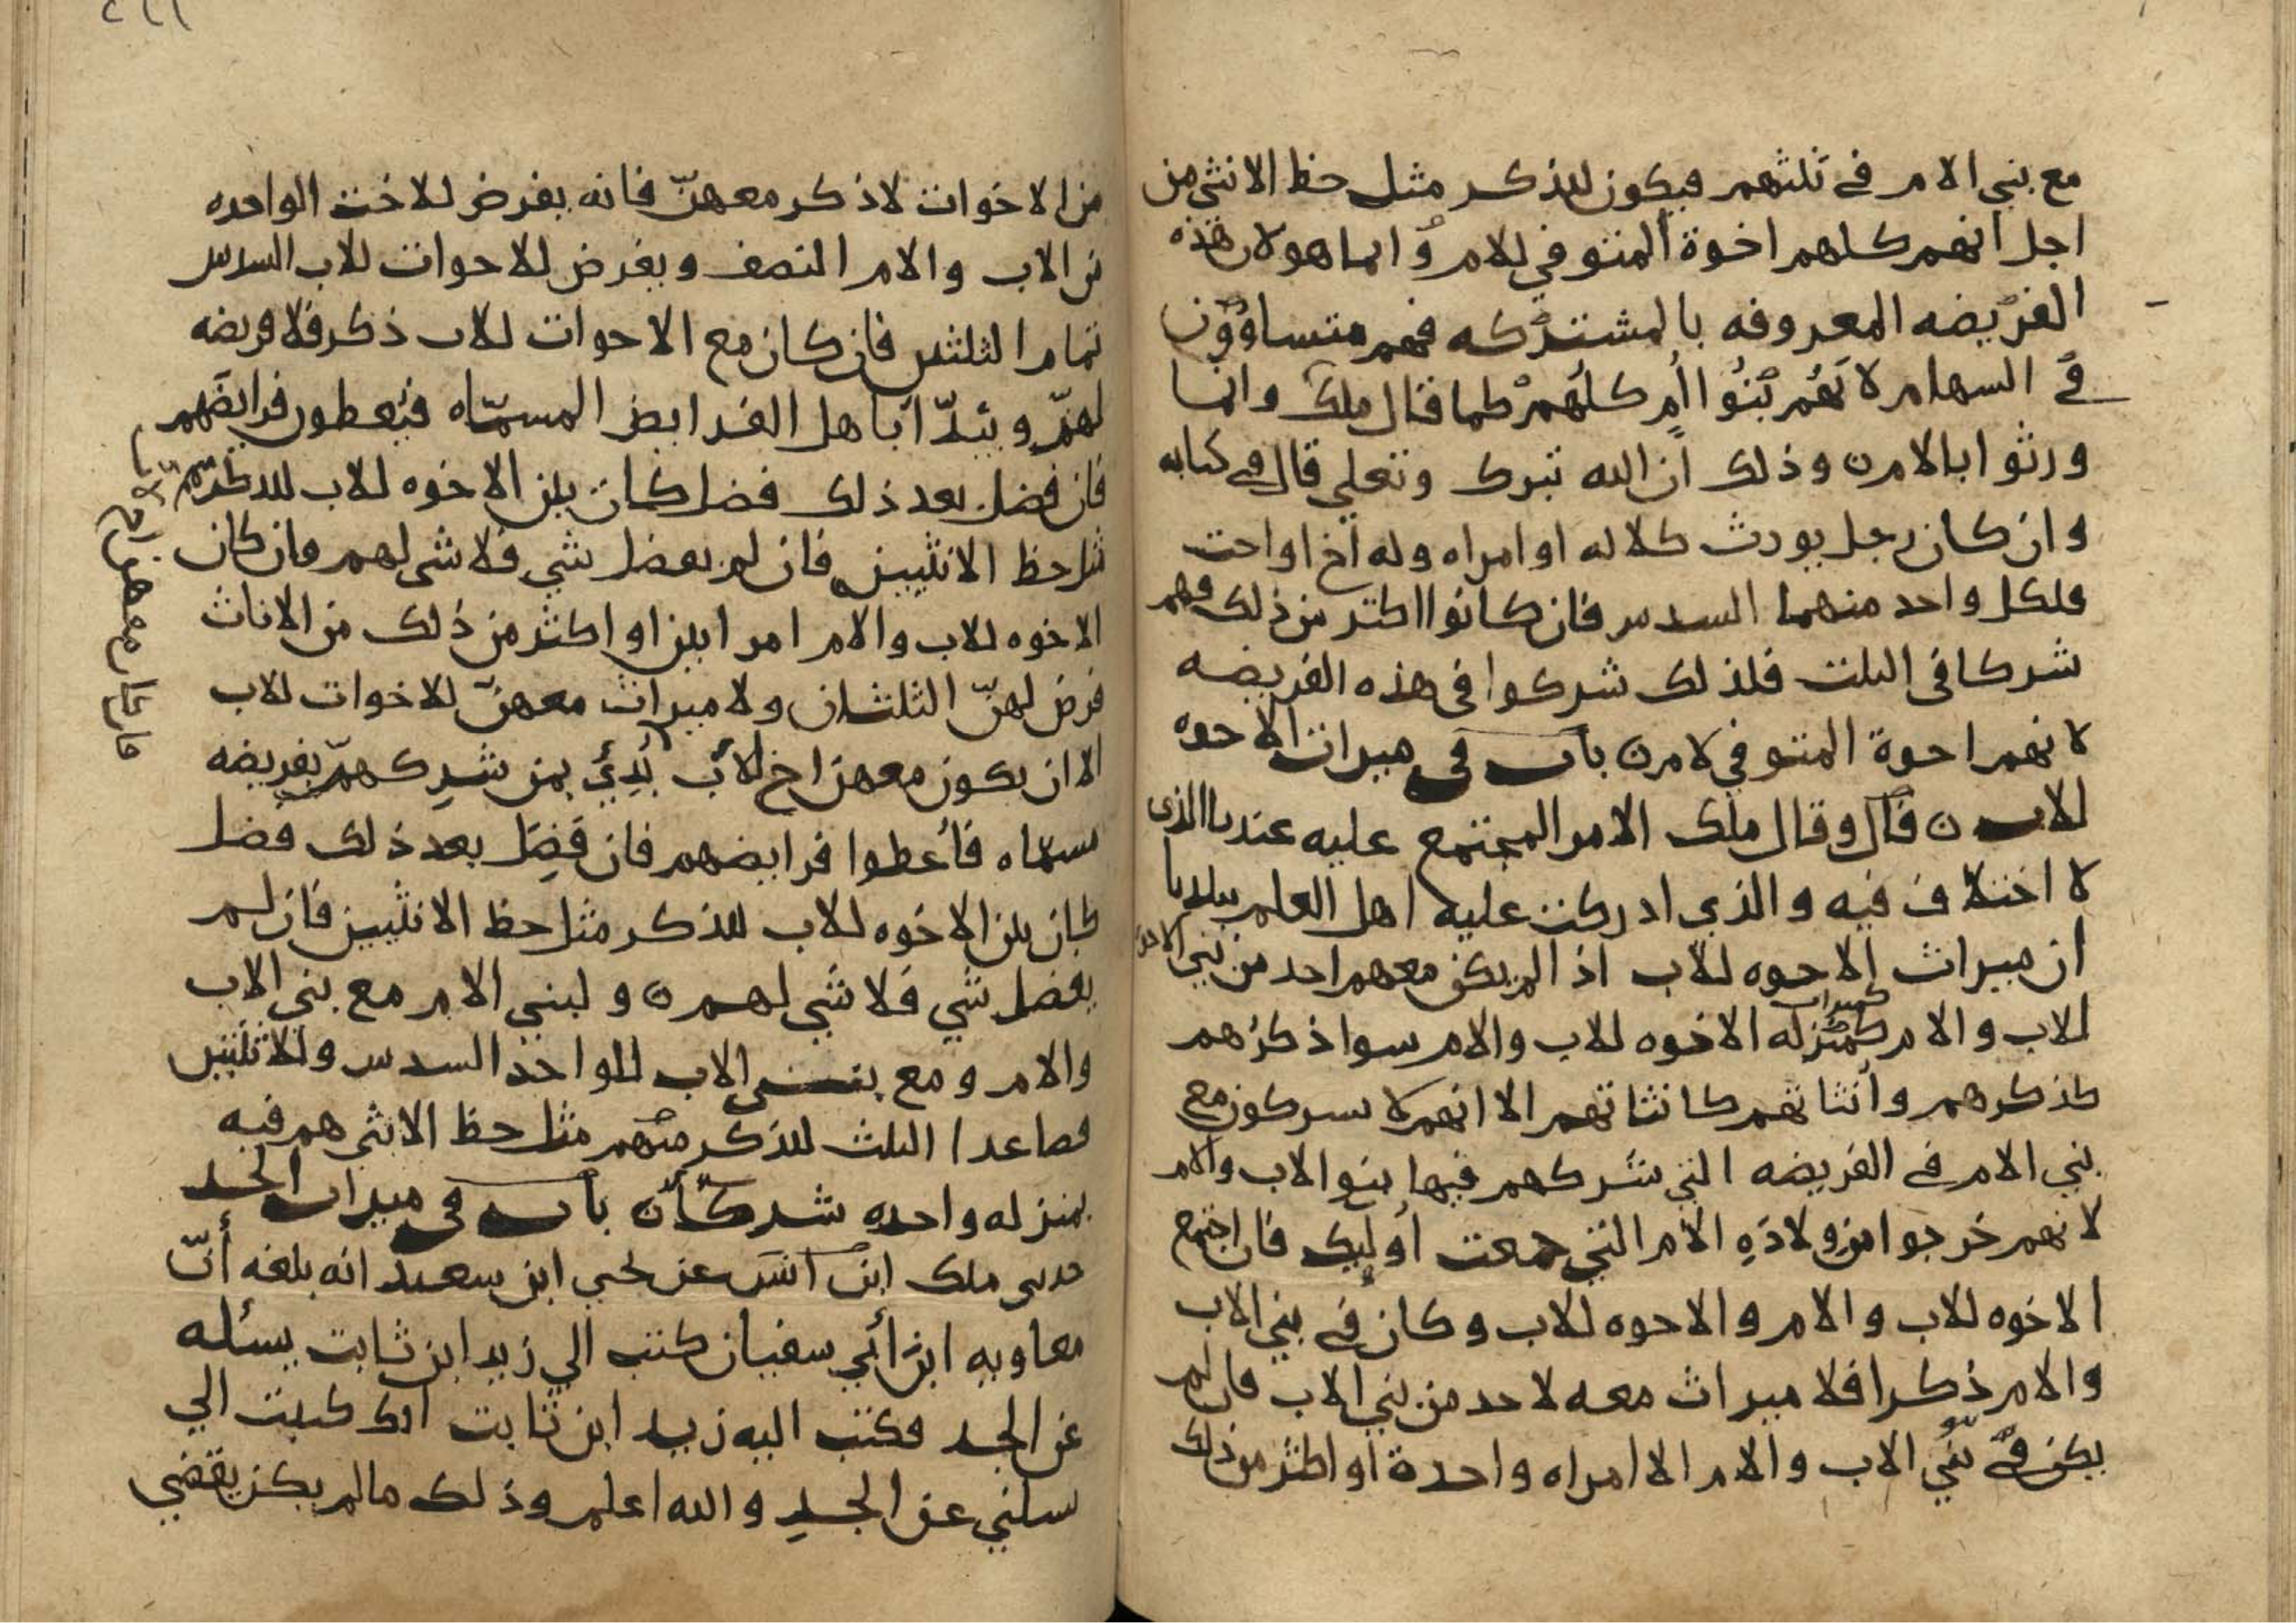 مع بني الام في ثلثهم فيكون للذكر مثل حظ الانثي من
اجل انهم كلهم اخوة المتوفي للام وانما هو لان هذه
الفريضه المعروفه بالمشتركه فهم متساوون
في السهام لانهم بنوا ام كلهم كما قال ملك وانما
ورثوا بالام ن وذلك ان الله تبرك وتعلي قال في كتابه
وان كان رجل يورث كلاله او امراه وله اخ او احت
فلكل واحد منهما السدس فان كانوا اكثر من ذلك فهم
شركا في الثلث فلذلك شركوا في هذه الفريضه
لانهم احوة المتوفي لامه ن باب في ميراث الاحوه
للاب ن قال وقال ملك الامر المجتمع عليه عندنا الذي
لا اختلاف فيه والذي ادركت عليه اهل العلم ببلدنا
ان ميراث الاحوه للاب اذا لم يكن معهم احد من بني
للاب والام كميراث كمنزله الاخوه للاب والام سوا ذكرهم
كذكرهم وانثاتهم كانثاتهم الا انهم لا يسركون مع
بني الام في الفريضه التي شركهم فيها بنو الاب والام
لانهم خرجوا من ولاده الام التي جمعت اوليك فان اجتمع
الاخوه للاب والام والاحوه للاب وكان في بني الاب
والام ذكرا فلا ميراث معه لاحد من بني الاب فان لم
يكن في بني الاب والام الا امراه واحدة او اكثر من ذلك
من الاخوات لا ذكر معهن فانه يفرض للاخت الواحده
من الاب والام النصف ويفرض للاحوات للاب السدس
تمام الثلثين فان كان مع الاحوات للاب ذكر فلا فريضه
لهن ويبدا باهل الفرايض المسماه فيعطون فرايضهم
فان فضل بعد ذلك فضل كان بين الاخوه للاب للذكر
مثل حظ الانثيين فان لم يفضل شي فلا شي لهم فان كان
الاخوه للاب والام امراتين او اكثر من ذلك من الاناث
فرض لهن الثلثان ولا ميراث معهن للاخوات للاب
الا ان يكون معهن اخ لاب بدئ بمن شركهم بفريضه
مسماه فأعطوا فرايضهم فان فضل بعد ذلك فضل
كان بين الاخوه للاب للذكر مثل حظ الانثيين فان لم
يفضل شي فلا شي لهم ن ولبني الام مع بني الاب
والام ومع بني الاب للواحد السدس وللاثنين
فصاعدا الثلث للذكر منهم مثل حظ الانثي هم فيه
بمنزله واحده شركا ن باب في ميراث الجد
حدثني ملك ابن انس عن يحيي ابن سعيد انه بلغه أنّ
معاويه ابن أبي سفيان كتب الي زيد ابن ثابت يسئله
عن الجد فكتب اليه زيد ابن ثابت انك كتبت الي
تسلني عن الجد والله اعلم وذلك ما لم يكن يقضي
فان كان معهن اخ لاب